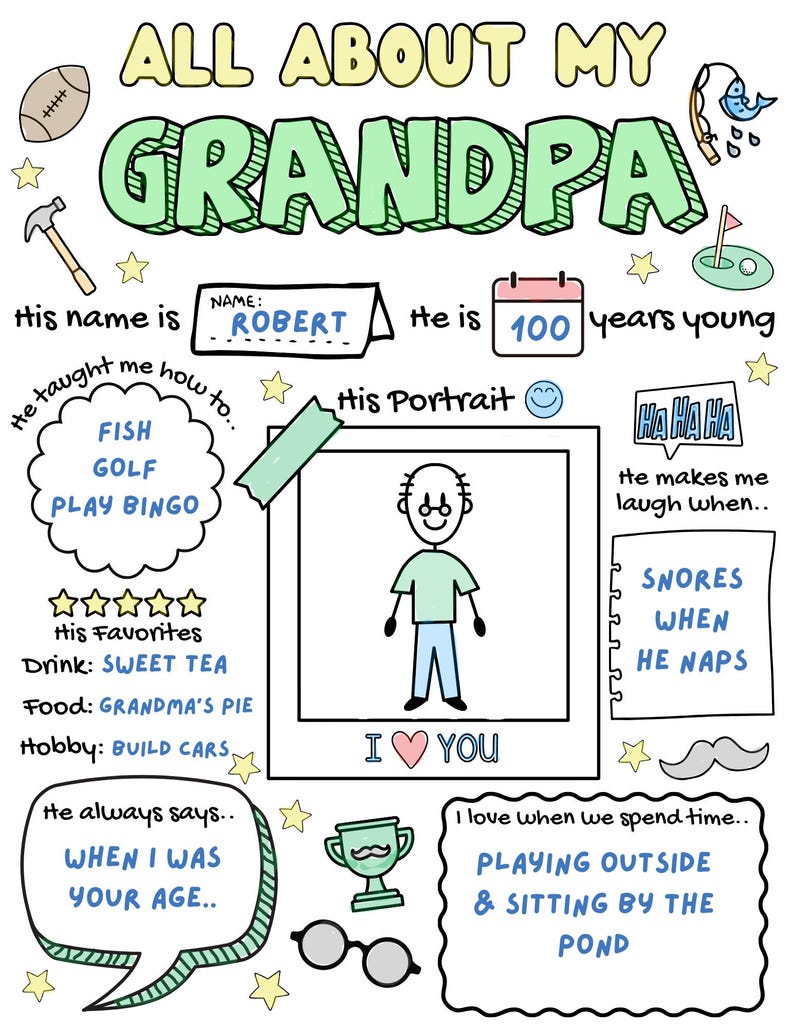 ALL ABOUT MY
GRANDPA
His name is
NAME:
ROBERT
He is
100
years young
He taught me how to..
FISH
GOLF
PLAY BINGO
His Portrait
I ♥ YOU
HA HA HA
He makes me
laugh when..
SNORES
WHEN
HE NAPS
His Favorites
Drink: SWEET TEA
Food: GRANDMA'S PIE
Hobby: BUILD CARS
He always says..
WHEN I WAS
YOUR AGE..
I love when we spend time..
PLAYING OUTSIDE
& SITTING BY THE
POND